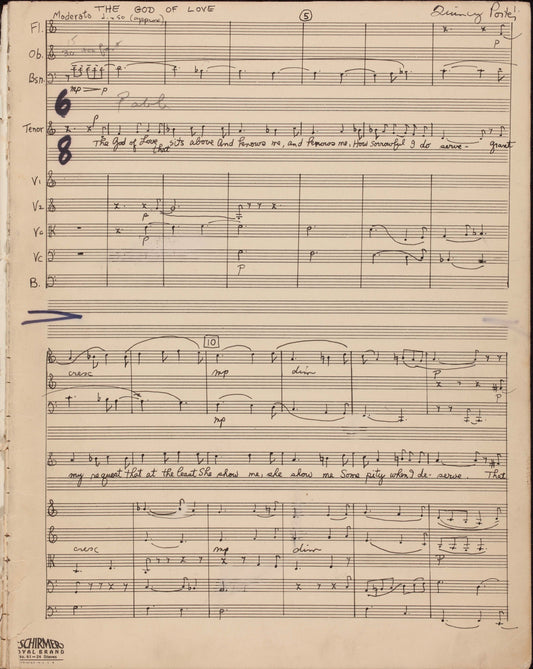 THE GOD OF LOVE
Quincy Porter
Moderato ♩. = 50 (approx)
5
Fl.
Ob.
Bsn.
mp > p
p
6
8
Tenor
p
The God of Love that sits above And Knows me, and Knows me, How sorrowful I do serve - grant
V1
V2
Va
Vc
B.
p
p
p
10
cresc mp dim p
p
mp
my request that at the least She show me, she show me Some pity when I de- serve. That
cresc mp dim p
SCHIRMER
ROYAL BRAND
No. 61—24 Staves